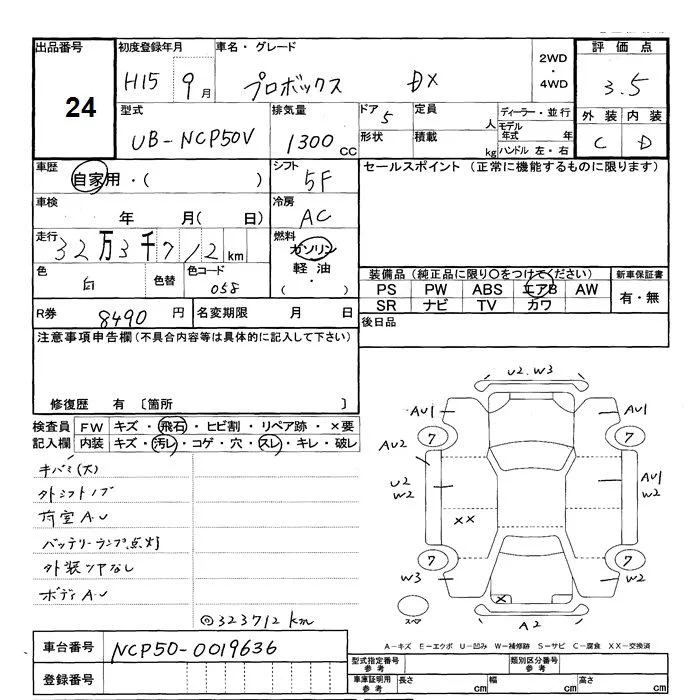 出品番号 初度登録年月 車名・グレード 2WD・4WD 評価点
24 H15 9月 プロボックス DX 3.5
型式 排気量 ドア 5 定員 人 ディーラー・並行 外装 内装
UB-NCP50V 1300 CC 形状 積載 kg モデル年式 年 ハンドル 左・右 C D
車歴 シフト セールスポイント (正常に機能するものに限ります)
自家用・( ) 5F
車検 年 月( 日) 冷房 AC
走行 32万3千712km 燃料 ガソリン・軽油・( )
色 白 色替 色コード 058
装備品 (純正品に限り〇をつけてください) 新車保証書
PS PW ABS エアB AW 有・無
SR ナビ TV カワ
R券 8490 円 名変期限 月 日 後日品
注意事項申告欄(不具合内容等は具体的に記入して下さい)
修復歴 有 〔箇所 〕
検査員 FW キズ・飛石・ヒビ割・リペア跡・×要
記入欄 内装 キズ・汚レ・コゲ・穴・スレ・キレ・破レ
キバミ(大)
外シフトノブ
荷室AU
バッテリーランプ点灯
外装ツヤなし
ボディAU
◎323712km
U2.W3
AU1 AU1
7 7
AU2
U2 W2 AU1 W2
××
7 7
W3 × W2
スペ A2
A-キズ E-エクボ U-凹み W-補修跡 S-サビ C-腐食 XX-交換済
車台番号 NCP50-0019636
登録番号
型式指定番号 参考 類別区分番号 参考
車庫証明用 参考 長さ cm 幅 cm 高さ cm